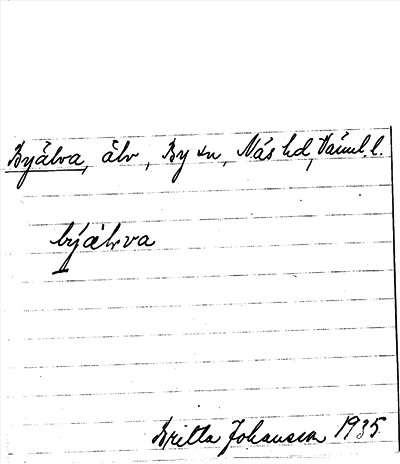 Byälva, älv, By sn, Näs hd, Värml. l.
býälvva
Britta Johansson 1935